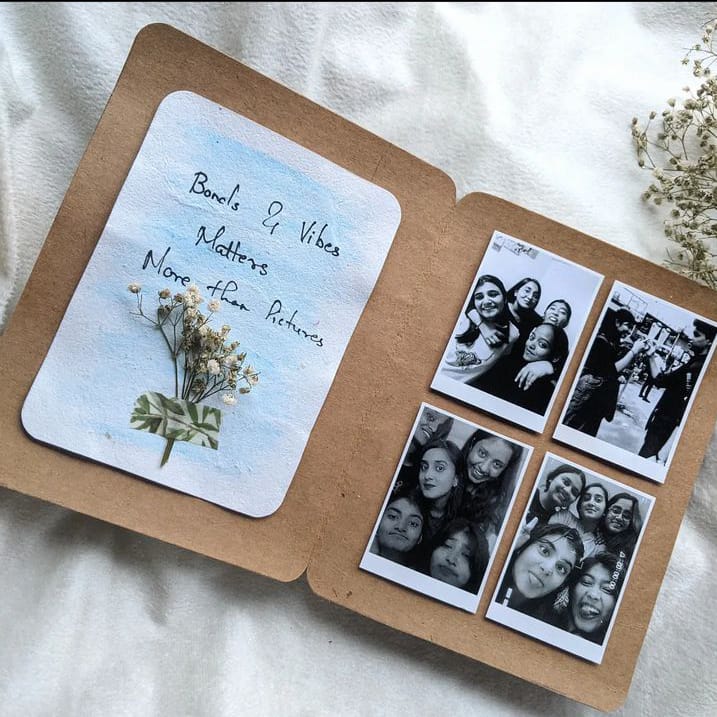 Bonds & Vibes
Matters
More than Pictures